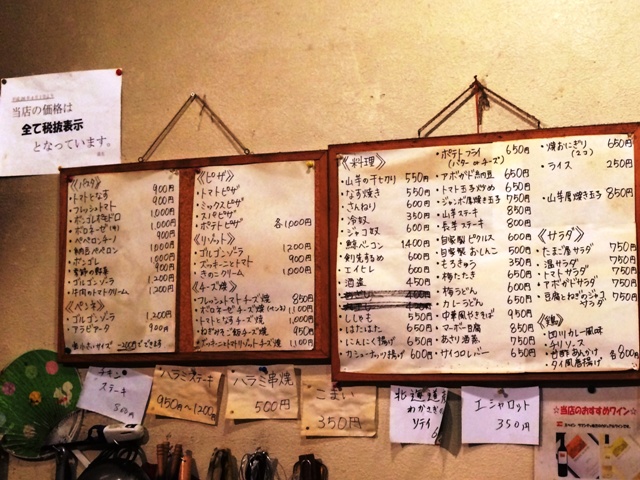 当店の価格は
全て税抜表示
となっています。
《パスタ》
・トマトとなす 900円
・フレッシュトマト 900円
・ボンゴレビヤンコ 1,000円
・ボロネーゼ 1,000円
・ペペロンチーノ 900円
・納豆ペペロン 1,000円
・ボンゴレ 1,000円
900円
・ゴルゴンゾーラ 1,200円
・トマトクリーム 1,200円
《ペンネ》
・ゴルゴンゾーラ 1,200円
・アラビアータ 900円
小さいサイズ -200円でできます
《ピザ》
・トマトピザ
・ミックスピザ
・ポテトピザ 各1000円
《リゾット》
・ゴルゴンゾーラ 1200円
・ズッキーニとトマト 900円
・きのこクリーム 1000円
《チーズ焼》
・フレッシュトマトチーズ焼 850円
・ボロネーゼチーズ焼 1100円
・トマトとなすチーズ焼 1000円
・ねぎみそご飯チーズ焼 950円
・ズッキーニとトマトリゾットチーズ焼 1,100円
《料理》
・山芋の千切り 550円
・なす焼き 550円
・さんねり 600円
・冷奴 350円
・ジャコ奴 600円
・鯨ベーコン 1400円
・刺身こんにゃく 600円
・エイヒレ 600円
・酒盗 450円
・ししゃも 550円
・はたはた 650円
・にんにく揚げ 650円
・カシューナッツ揚げ 600円
・ポテトフライ 650円
(バター or チーズ)
・アボガド月見 650円
・トマト玉子炒め 650円
・ジャンボ厚焼き玉子 750円
・山芋ステーキ 850円
・長芋ステーキ 800円
・自家製ピクルス 600円
・自家製おしんこ 500円
・もろきゅう 350円
・梅たたき 450円
・梅うどん 600円
・カレーうどん 650円
・中華風やきそば 950円
・マーボー豆腐 850円
・あさり酒蒸 750円
・サイコロレバー 650円
・焼おにぎり 650円
(2コ)
・ライス 250円
・山芋厚焼き玉子 850円
《サラダ》
・たまご居サラダ 750円
・温サラダ 750円
・トマトサラダ 750円
・アボガドサラダ 750円
・豆腐とねぎのジャコサラダ 750円
《鶏》
・四川カレー風味
・チリソース
・甘酢あんかけ
・タイ風唐揚げ 各800円
チキン
ステーキ
850円
ハラミステーキ
950円〜1200円
ハラミ串焼
500円
こまい
350円
北海道産
わかさぎの
エシャロット
350円
☆当店のおすすめワイン☆